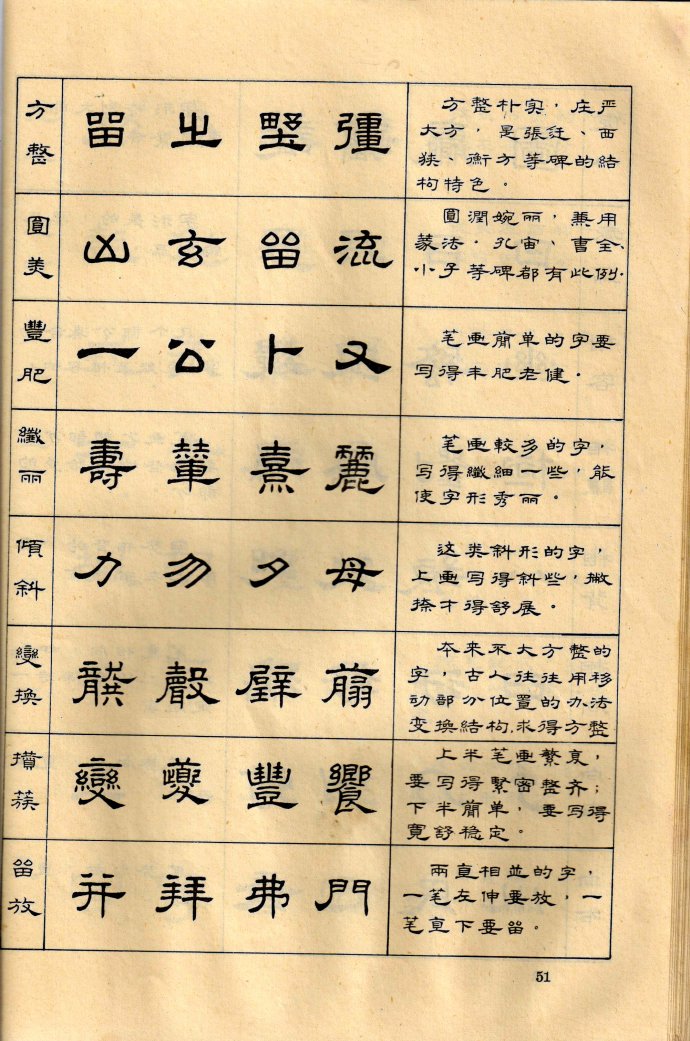 方整
留 㞢 野 彊
方整朴实，庄严
大方，是張迁、西
狭、衡方等碑的結
构特色。
圓美
凶 玄 留 流
圓潤婉丽，兼用
篆法．孔宙、曹全、
小子等碑都有此例．
豐肥
一 公 卜 又
笔画简单的字要
写得丰肥老健．
纖丽
壽 輦 熹 麗
笔画較多的字
写得纖細一些，能
使字形秀丽。
傾斜
力 勿 夕 母
这类斜形的字，
上画写得斜些，撇
捺才得舒展。
變换
龔 聲 壁 翦
本来不大方整的
字，古人往往用移
动部分位置的办法
变换結构．求得方整
攢蔟
變 夔 豐 饗
上半笔画繁复，
要写得緊密整齐；
下半简单，要写得
寬舒稳定。
留放
并 拜 弗 門
兩直相並的字，
一笔左伸要放，一
笔直下要留。
51